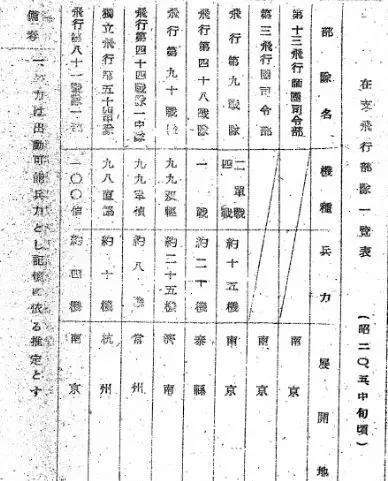 在支飛行部隊一覽表　(昭二〇、五中旬頃)
部隊名　機種　兵力　展開地
第十三飛行師團司令部　南京
第三飛行團司令部　南京
飛行第九戰隊　二單戰　四戰　約十五機　南京
飛行第四十八戰隊　一戰　約二十機　泰縣
飛行第九十戰隊　九九双輕　約二十五機　濟南
飛行第四十四戰隊一中隊　九九軍偵　約八機　常州
獨立飛行第五十四中隊　九八直協　約十機　杭州
飛行第八十一戰隊一部　一〇〇偵　約四機　南京
備考　一、兵力は出動可能兵力とし記憶に依る推定とす